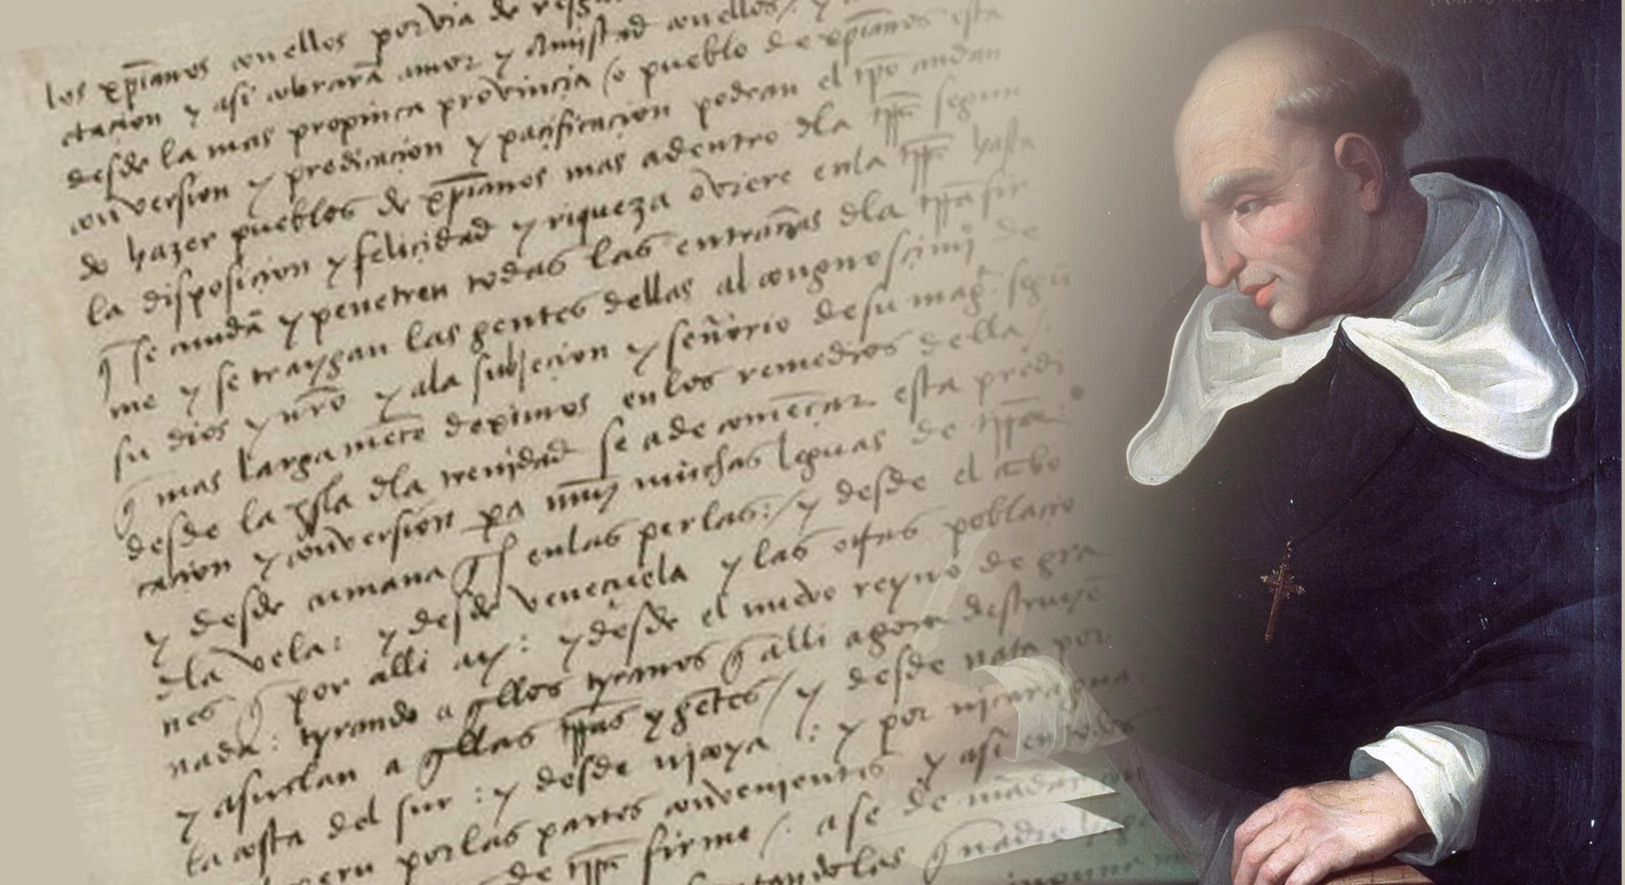 los xp̄ianos con ellos por via de resga
ctacion y asi cobrarā amor y Amistad con ellos / y
desde la mas propinca provincia (o pueblo de xp̄ianos esta
conversion y predicacion y pacificacion podran el tp̄o andan
de hazer pueblos de xp̄ianos mas adentro dla trr̄a segun
la disposicion y felicidad y riqueza oviere enla trr̄a hasta
q̄ se cundā y penetren todas las entrañas dla trr̄a fir
me y se traygan las gentes dellas al cognoscimj̄ de
su dios y nr̄o y ala subjecion y señorio de su mag. segū
q̄ mas larga mēte deximos enlos remedios della /
desde la ysla dla trenjdad se a de comēcar esta predi
cacion y conversion pa muy muchas leguas de trr̄a:
y desde cumana enlas perlas: / y desde el cabo
dla vela: y desde veneçuela y las otras poblacio
nes q̄ por alli ay: y desde el nuevo reyno de gra
nada: tyrando a q̄llos tyranos q̄ alli agora destruyē
y asuelan a q̄llas trr̄as y gētes / y desde nata por
la costa del sur: y desde njcoya /: y por njcaragua:
peru por las partes convenientes y asi en todos
de trr̄a firme / : a se de mādar
las q̄ nadie
ningun